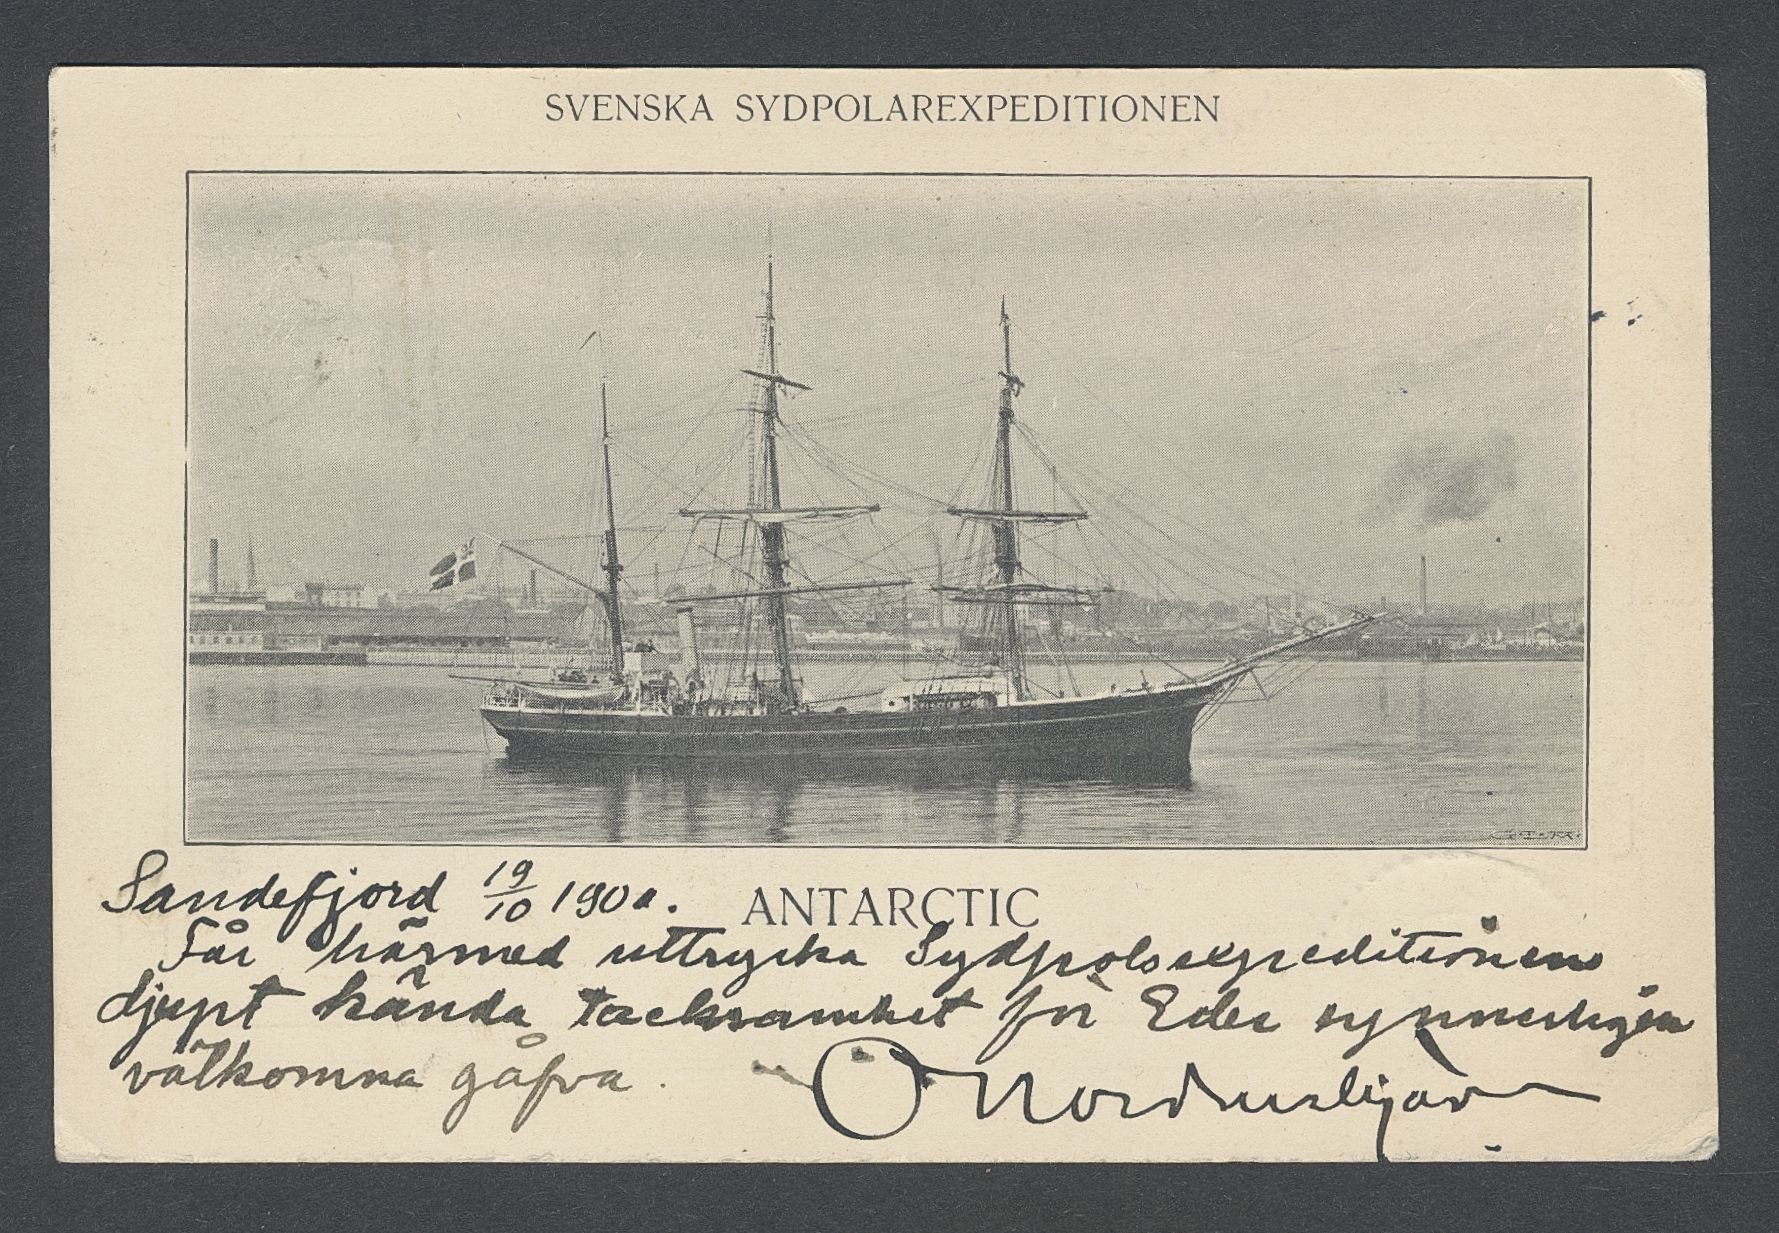 SVENSKA SYDPOLAREXPEDITIONEN
Sandefjord 19/10 1901.
ANTARCTIC
Får härmed uttrycka Sydpolsexpeditionens
djupt kända tacksamhet för Eder synnerligen
välkomna gåfva.
O Nordenskjöld